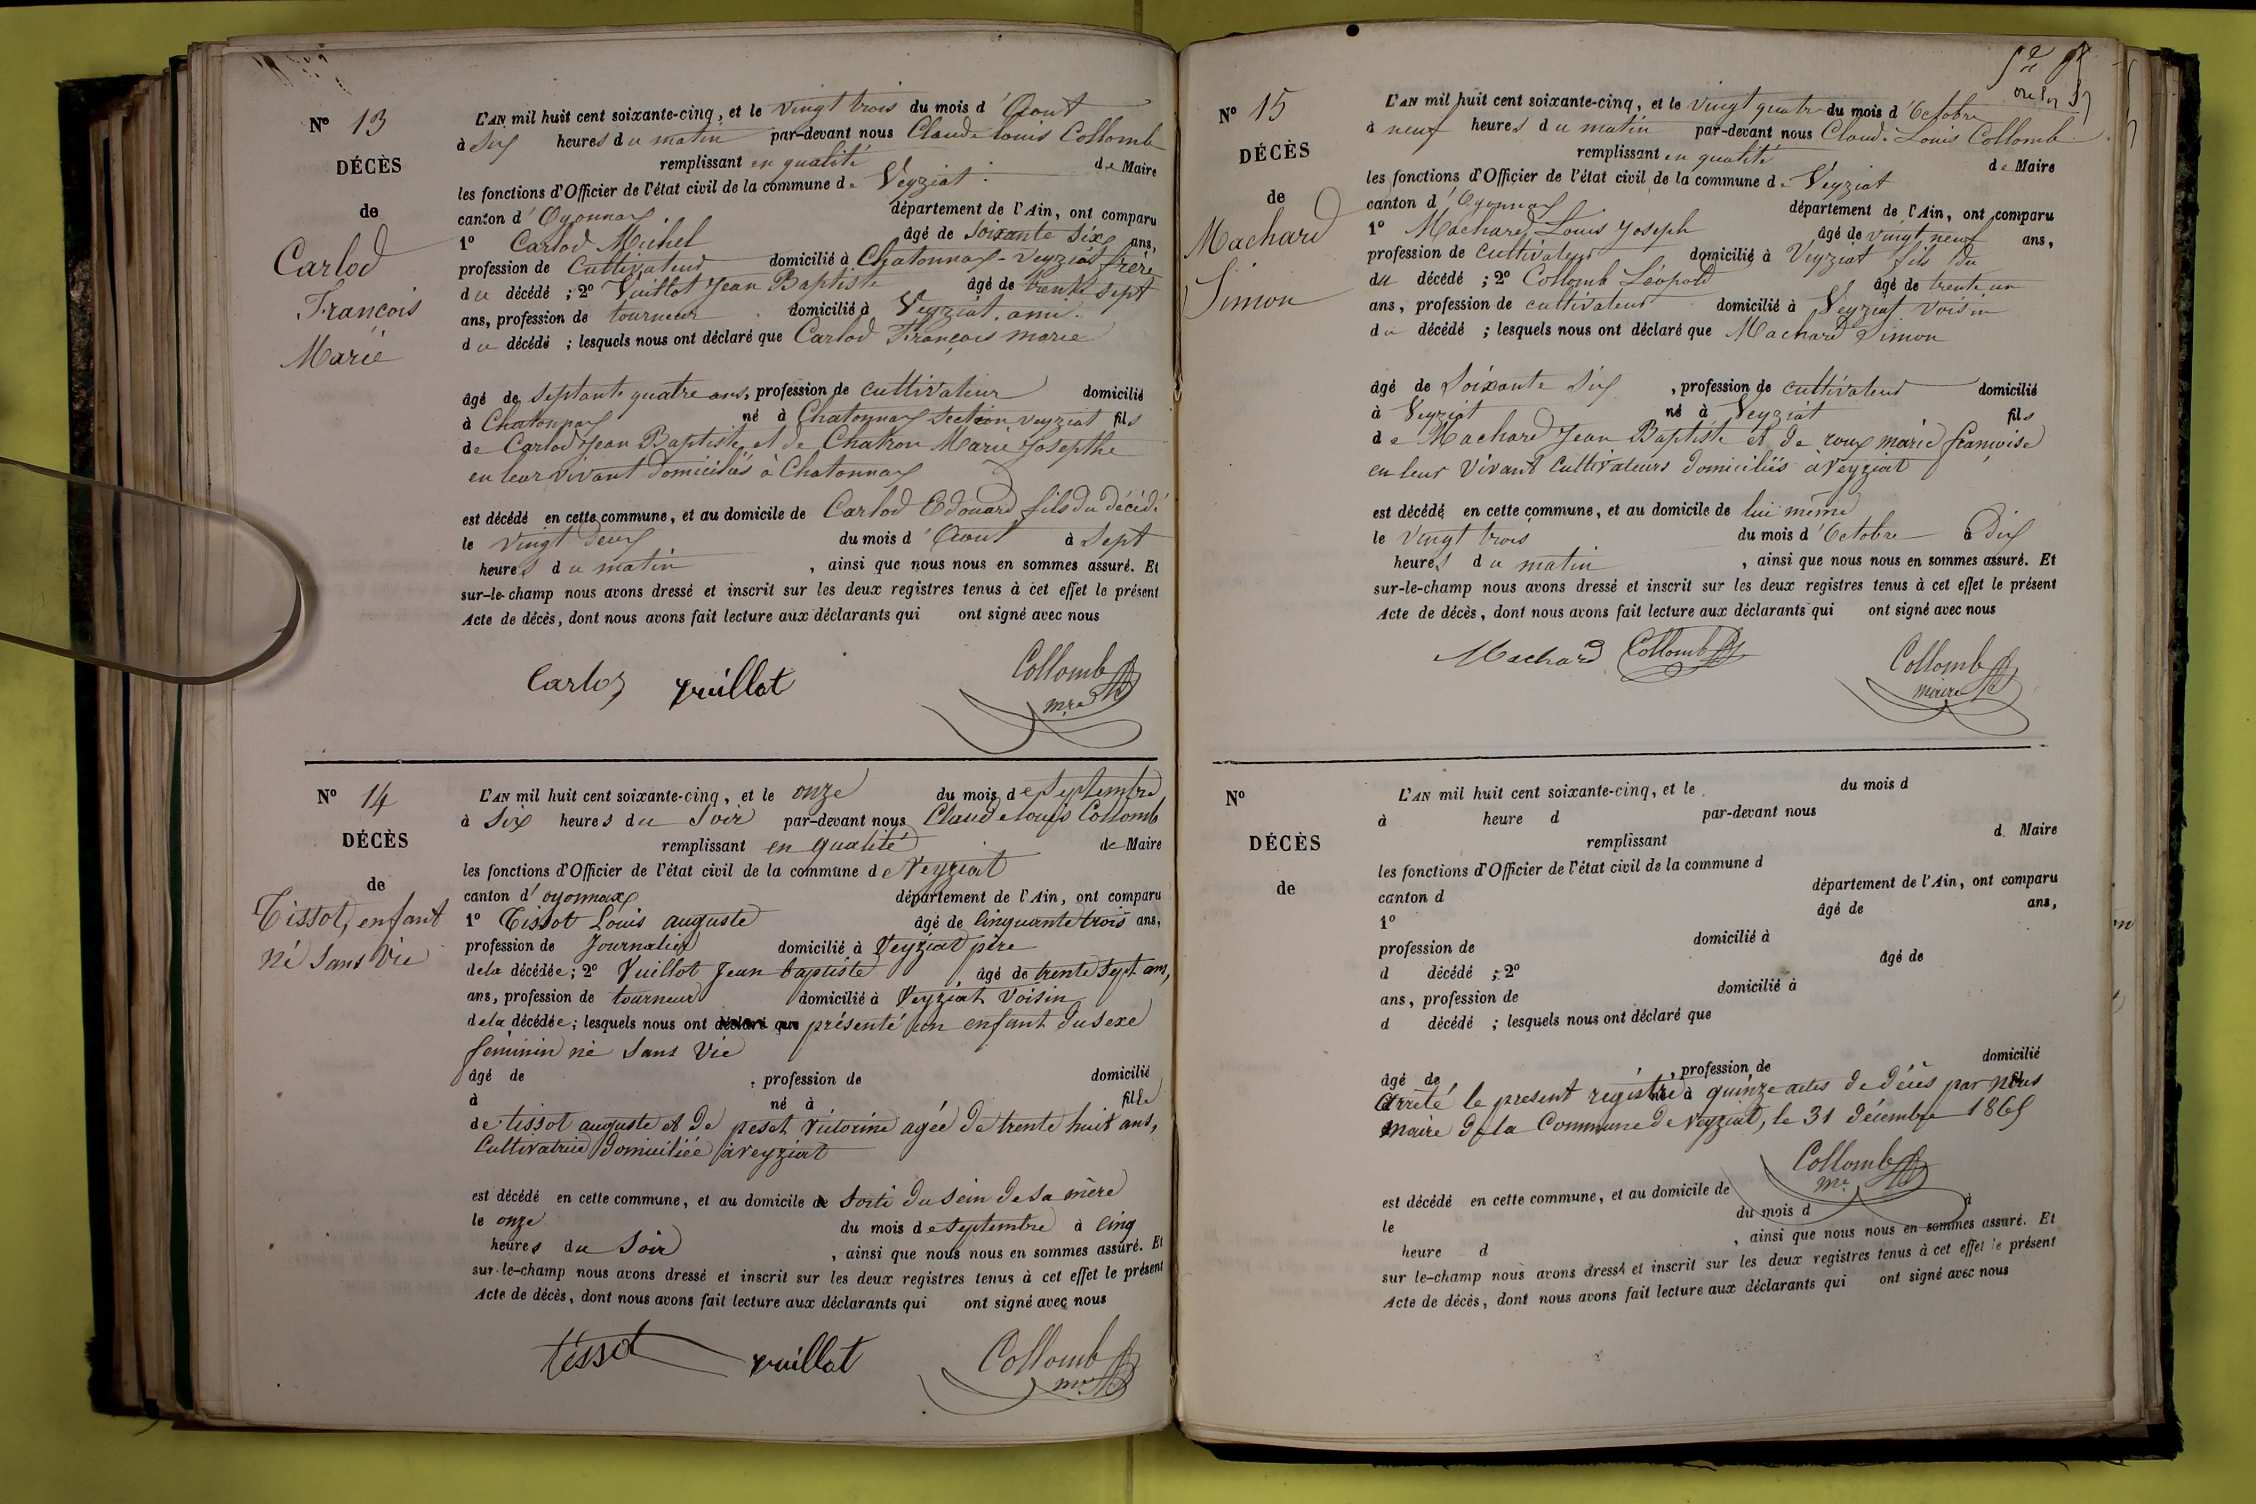 N° 13
DÉCÈS
de
Carlod
François
Marie
L'AN mil huit cent soixante-cinq, et le vingt trois du mois d'Aout
à six heures du matin par-devant nous Claude Louis Collomb
remplissant en qualité de Maire
les fonctions d'Officier de l'état civil de la commune de Veyziat
canton d'Oyonnax département de l'Ain, ont comparu
1° Carlod Michel âgé de soixante six ans,
profession de Cultivateur domicilié à Chatonnax - Veyziat frère
du décédé ; 2° Vuillot Jean Baptiste âgé de trente sept
ans, profession de tourneur domicilié à Veyziat, ami
du décédé ; lesquels nous ont déclaré que Carlod François marie
âgé de septante quatre ans, profession de cultivateur domicilié
à Chatonnax né à Chatonnax section veyziat fils
de Carlod Jean Baptiste et de Chatron Marie Josepthe
en leur vivant domiciliés à Chatonnax
est décédé en cette commune, et au domicile de Carlod Edouard fils du décédé
le vingt deux du mois d'Aout à sept
heures du matin , ainsi que nous nous en sommes assuré. Et
sur-le-champ nous avons dressé et inscrit sur les deux registres tenus à cet effet le présent
Acte de décès, dont nous avons fait lecture aux déclarants qui ont signé avec nous
Carlod vuillot Collomb
mre
N° 14
DÉCÈS
de
Tissot, enfant
né sans vie
L'AN mil huit cent soixante-cinq, et le onze du mois de septembre
à six heures du soir par-devant nous Claude louis Collomb
remplissant en qualité de Maire
les fonctions d'Officier de l'état civil de la commune de Veyziat
canton d'oyonnax département de l'Ain, ont comparu
1° Tissot Louis auguste âgé de cinquante trois ans,
profession de Journalier domicilié à Veyziat père
dela décédée ; 2° Vuillot Jean baptiste âgé de trente sept ans,
ans, profession de tourneur domicilié à Veyziat Voisin
dela décédée ; lesquels nous ont déclaré que présenté un enfant du sexe
féminin né sans vie
âgé de , profession de domicilié
à né à fille
de tissot auguste et de peset Victorine agée de trente huit ans,
Cultivatrice domiciliée à veyziat
est décédé en cette commune, et au domicile de sorti du sein de sa mère
le onze du mois de septembre à cinq
heures du soir , ainsi que nous nous en sommes assuré. Et
sur-le-champ nous avons dressé et inscrit sur les deux registres tenus à cet effet le présent
Acte de décès, dont nous avons fait lecture aux déclarants qui ont signé avec nous
tissot vuillot Collomb
mre
N° 15
DÉCÈS
de
Machard
Simon
L'AN mil huit cent soixante-cinq, et le vingt quatre du mois d'Octobre
à neuf heures du matin par-devant nous Claude Louis Collomb
remplissant en qualité de Maire
les fonctions d'Officier de l'état civil de la commune de Veyziat
canton d'Oyonnax département de l'Ain, ont comparu
1° Machard Louis Joseph âgé de vingt neuf ans,
profession de cultivateur domicilié à Veyziat fils du
du décédé ; 2° Collomb Léopold âgé de trente un
ans, profession de cultivateur domicilié à Veyziat Voisin
du décédé ; lesquels nous ont déclaré que Machard Simon
âgé de soixante six , profession de cultivateur domicilié
à Veyziat né à Veyziat fils
de Machard Jean Baptiste et de roux marie françoise
en leur vivant cultivateurs domiciliés à veyziat
est décédé en cette commune, et au domicile de lui même
le vingt trois du mois d'Octobre à Dix
heures du matin , ainsi que nous nous en sommes assuré. Et
sur-le-champ nous avons dressé et inscrit sur les deux registres tenus à cet effet le présent
Acte de décès, dont nous avons fait lecture aux déclarants qui ont signé avec nous
Machard Collomb Collomb
maire
N°
DÉCÈS
de
L'AN mil huit cent soixante-cinq, et le du mois d
à heure d par-devant nous
remplissant d Maire
les fonctions d'Officier de l'état civil de la commune d
canton d département de l'Ain, ont comparu
1° âgé de ans,
profession de domicilié à
d décédé ; 2° âgé de
ans, profession de domicilié à
d décédé ; lesquels nous ont déclaré que
âgé de , profession de domicilié
à né à fil
Arreté le present registre à quinze actes de décès par nous
maire de la Commune de Veyziat, le 31 décembre 1865
Collomb
mre
est décédé en cette commune, et au domicile de
le du mois d à
heure d , ainsi que nous nous en sommes assuré. Et
sur le-champ nous avons dressé et inscrit sur les deux registres tenus à cet effet le présent
Acte de décès, dont nous avons fait lecture aux déclarants qui ont signé avec nous